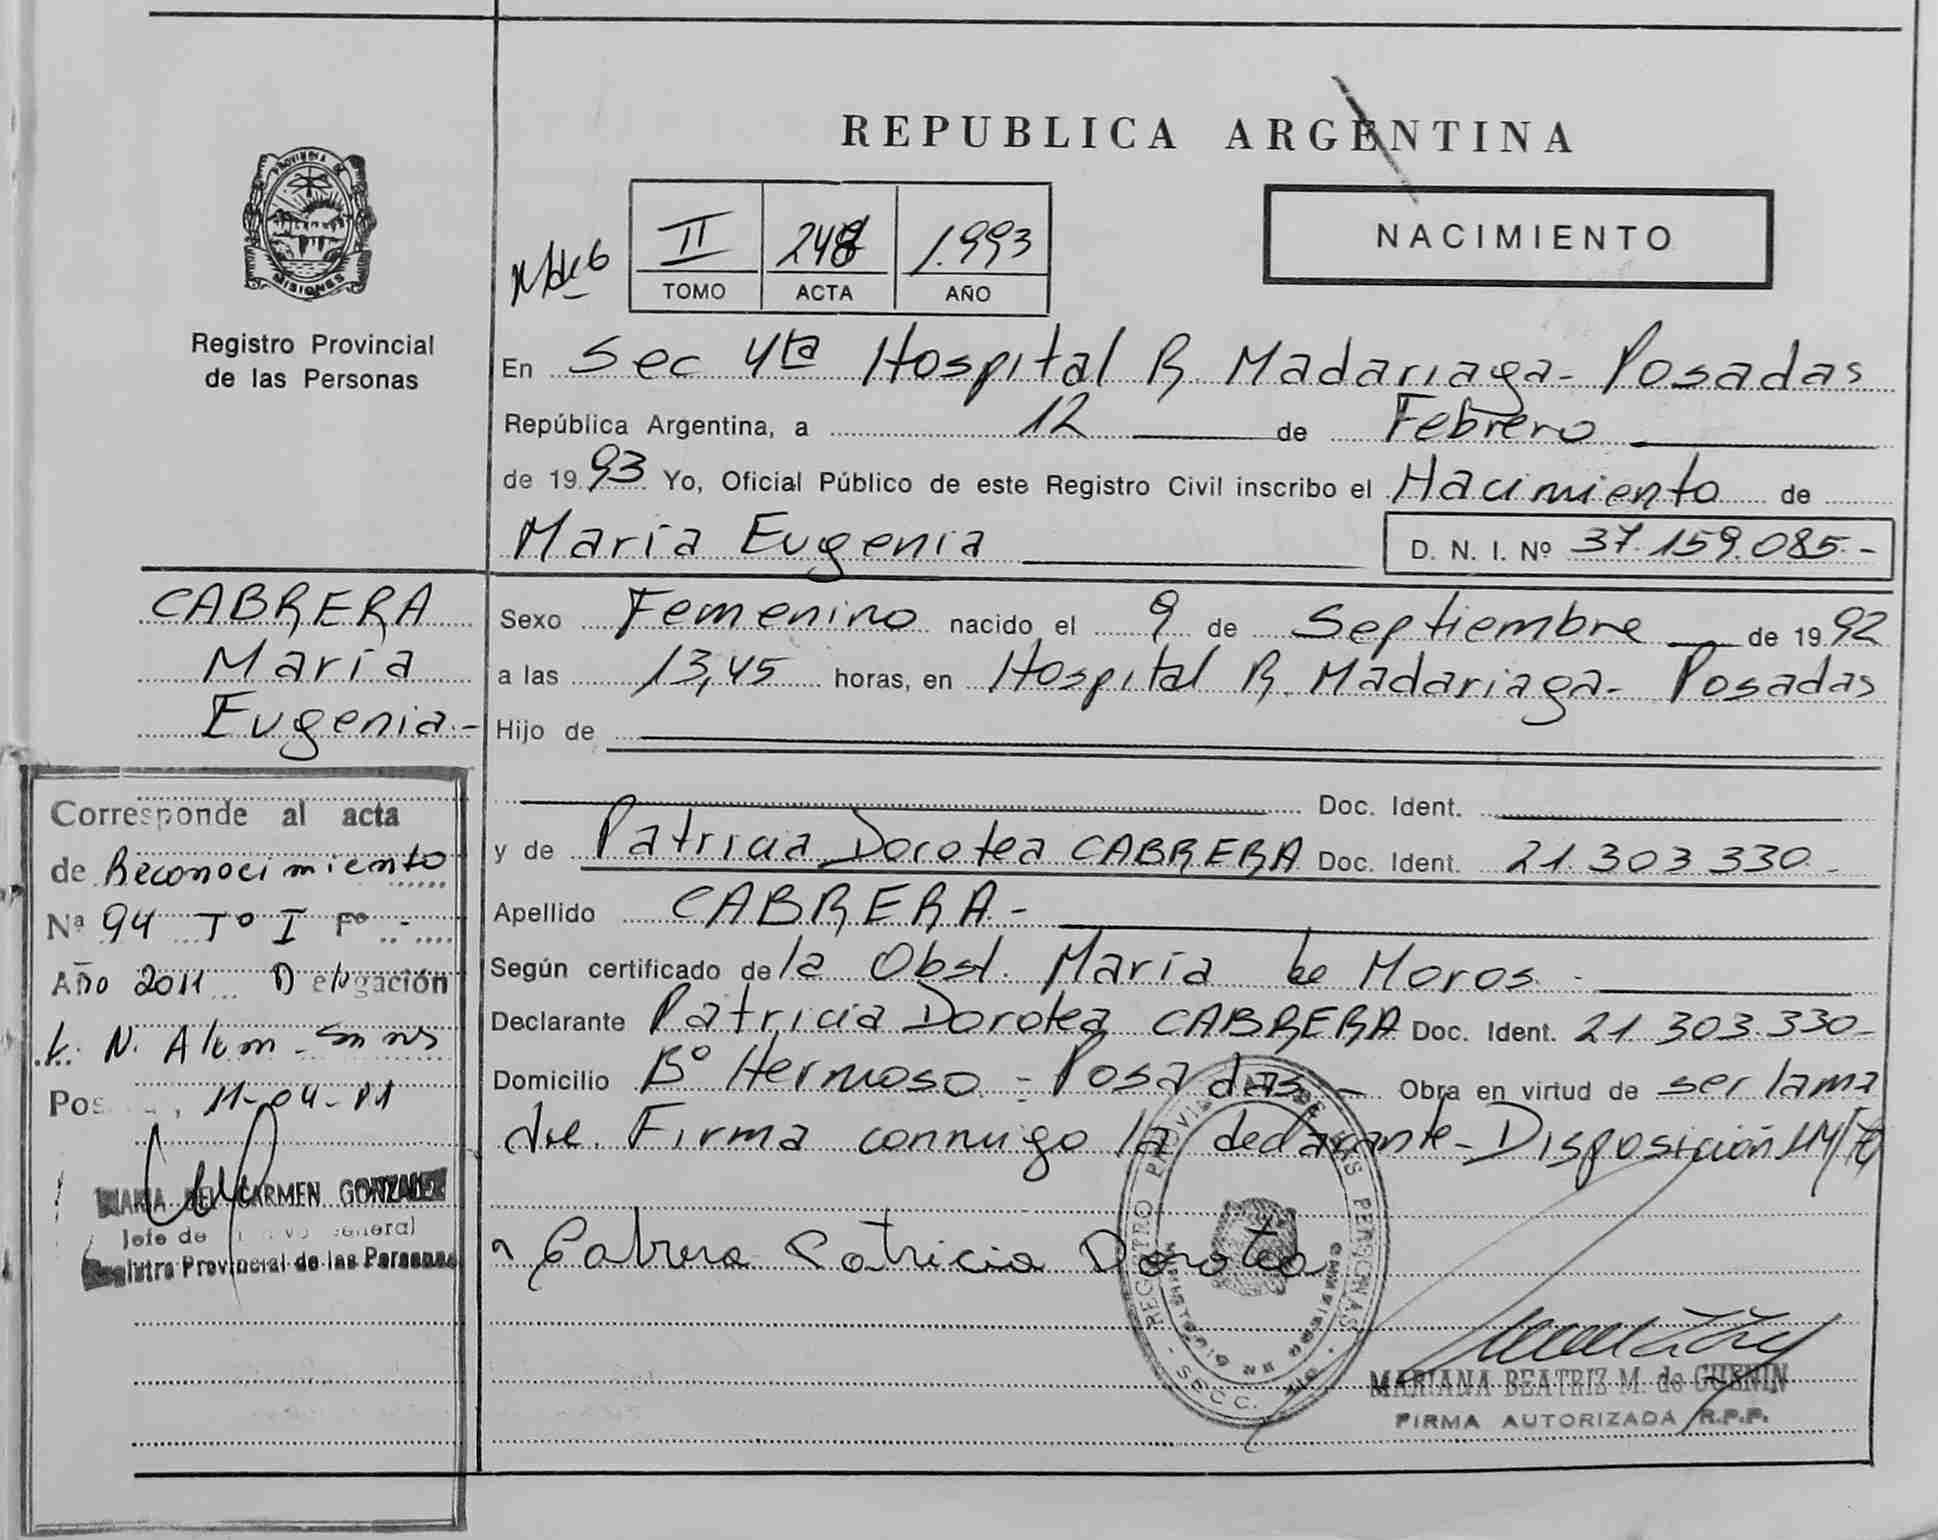 REPUBLICA ARGENTINA
NACIMIENTO
PROVINCIA DE
MISIONES
Registro Provincial
de las Personas
II 248 1.993
TOMO ACTA AÑO
En Sec 4ta Hospital R. Madariaga - Posadas
República Argentina, a 12 de Febrero
de 1993 Yo, Oficial Público de este Registro Civil inscribo el Nacimiento de
María Eugenia D. N. I. Nº 37.159.085.-
CABRERA
María
Eugenia.-
Sexo Femenino nacido el 9 de Septiembre de 1992
a las 13,45 horas, en Hospital R. Madariaga - Posadas
Hijo de
Doc. Ident.
y de Patricia Dorotea CABRERA Doc. Ident. 21.303.330.-
Apellido CABRERA.-
Según certificado de la Obst. María de Moros.-
Declarante Patricia Dorotea CABRERA Doc. Ident. 21.303.330.-
Domicilio Bº Hermoso - Posadas.- Obra en virtud de ser la ma
dre. Firma conmigo la declarante - Disposición
Cabrera Patricia Dorotea
REGISTRO PROVINCIAL DE LAS PERSONAS - SECC.
MARIANA BEATRIZ M. de GUENIN
FIRMA AUTORIZADA R.P.P.
Corresponde al acta
de Reconocimiento
Nª 94 Tº I Fº -
Año 2011 Delegación
L. N. Alem - Snns
Pos , 11-04-11
MARIA DEL CARMEN GONZALEZ
Jefe de General
Registro Provincial de las Personas